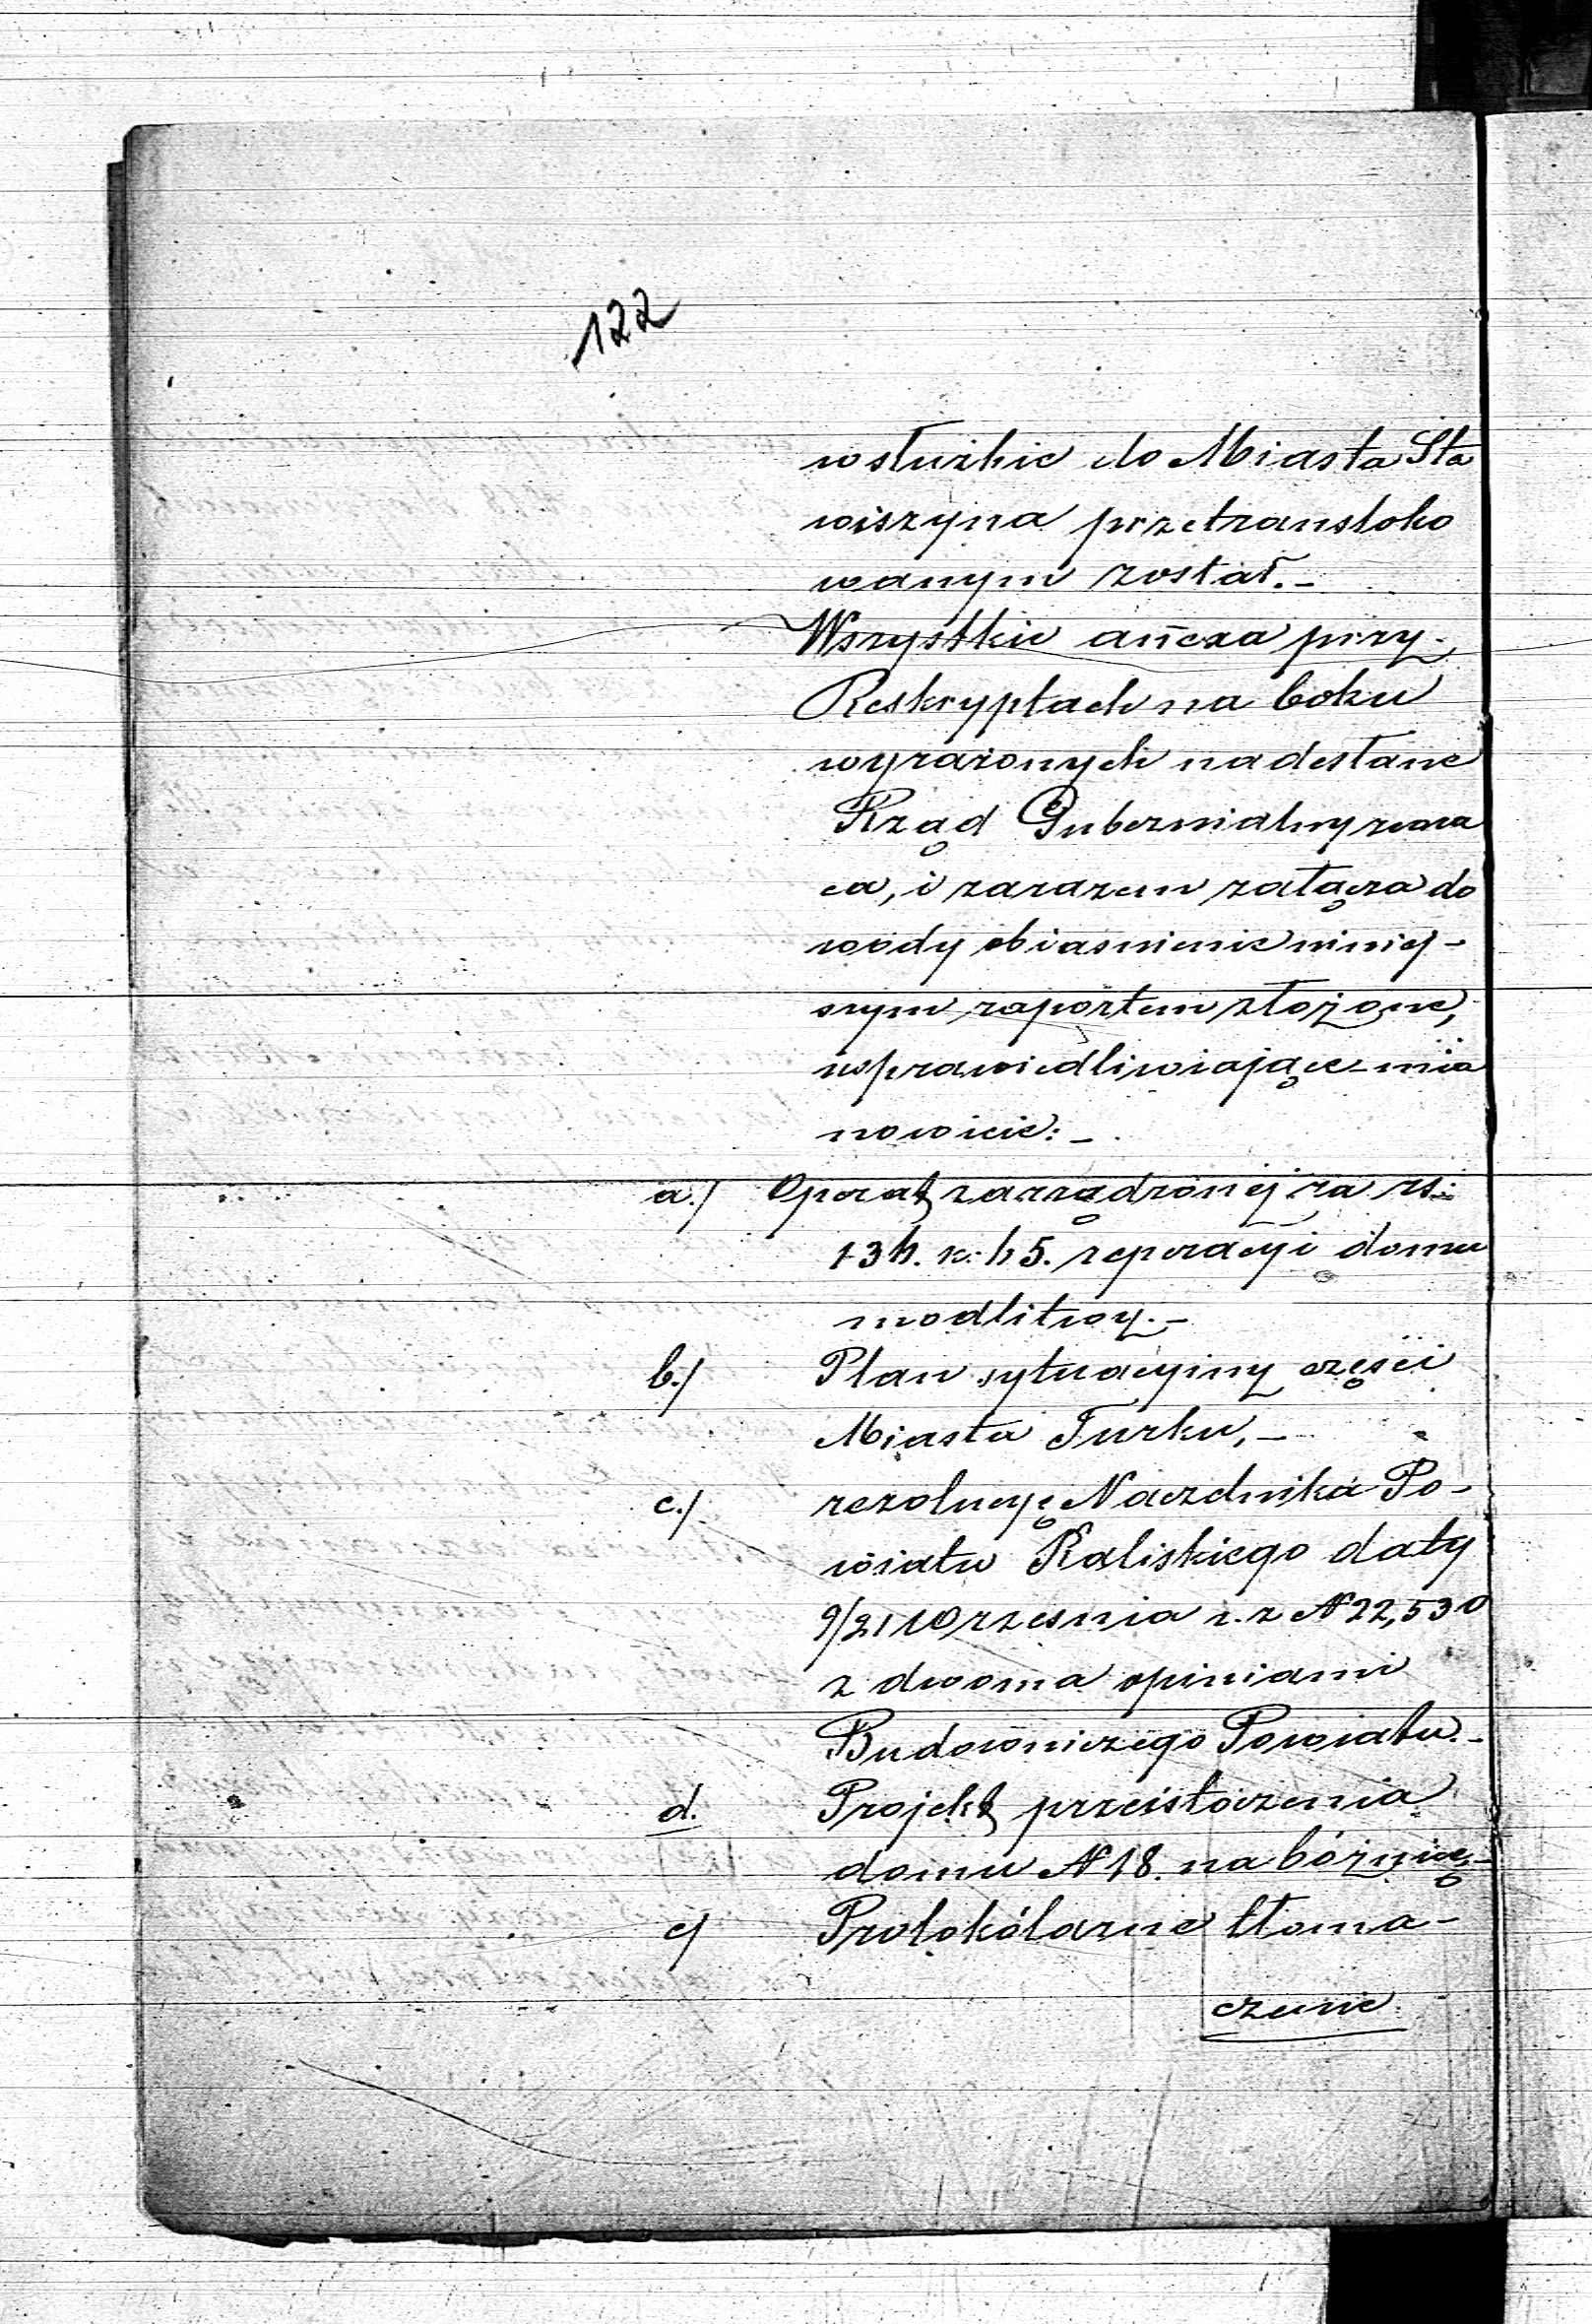 122
w służbie do Miasta Sta
wiszyna przetransloko
wanym został.-
Wszystkie añexa przy
Reskryptach na boku
wyrażonych nadesłane
Rząd Gubernialny zwra
ca, i zarazem załącza do
wody obiasnienie niniej-
szym raportem złożone,
usprawiedliwiające mia
nowicie:-
a./ Operat zarządzonej za rs:
134. k: 45. reperacyi domu
modlitwy.-
b./ Plan sytuacyiny części
Miasta Turku,-
c./ rezolucyę Naczelnika Po-
wiatu Kaliskiego daty
9/21 Wrzesnia r. z N 22,530
z dwoma opiniami
Budowniczego Powiatu.-
d. Projekt przeistoczenia
domu N 18. na bóżnicę,-
e/ Protokólarne tłoma-
czenie